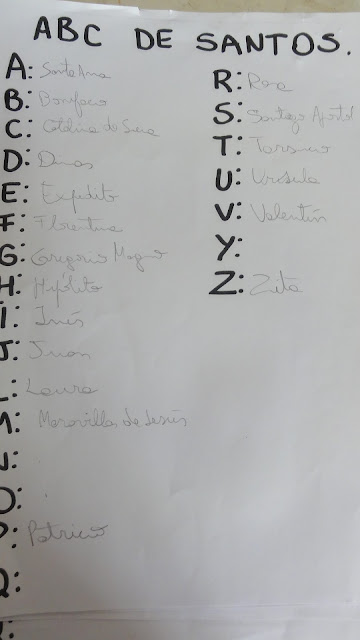 ABC DE SANTOS.
A: Santa Ana
B: Bonifacio
C: Catalina de Siena
D: Dimas
E: Expedito
F: Florentina
G: Gregorio Magno
H: Hipólito
I: Inés
J: Juan
L: Laura
M: Maravillas de Jesús
N:
O:
P: Patricio
Q:
R: Rosa
S: Santiago Apóstol
T: Tarsicio
U: Ursula
V: Valentín
Y:
Z: Zita